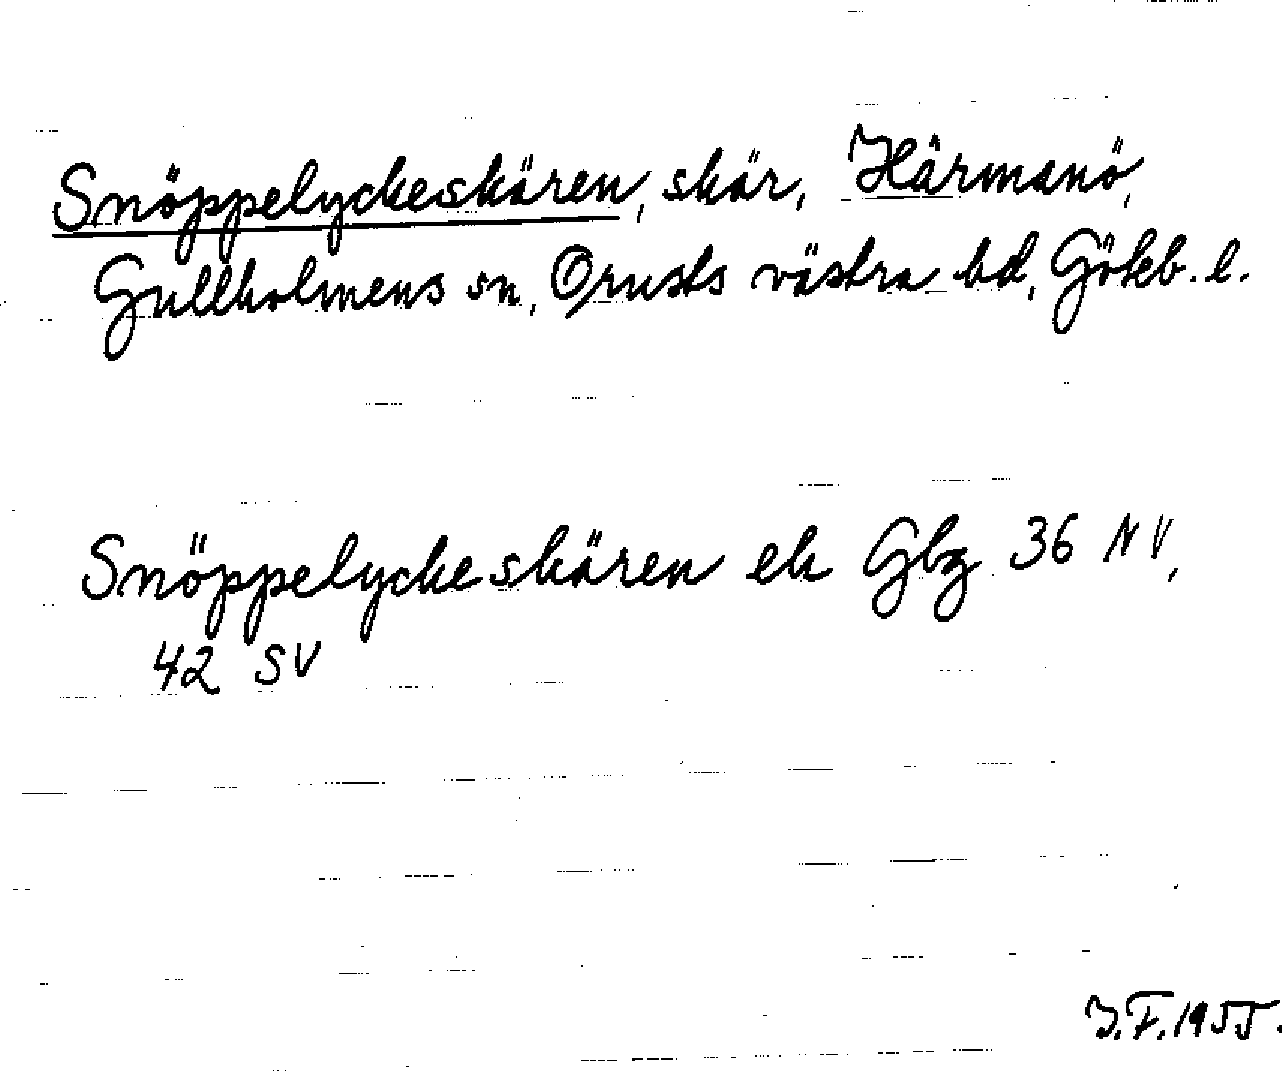 Snöppelyckeskären, skär, Härmanö,
Gullholmens sn, Orusts västra hd, Göteb. l.
Snöppelyckeskären ek Gbg 36 NV,
42 SV
I.F. 1955.